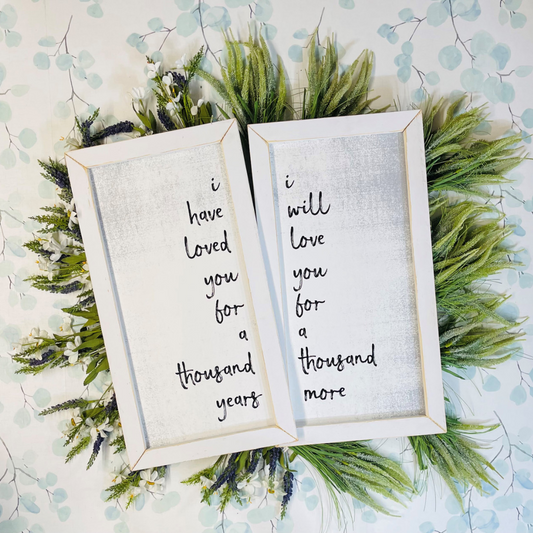 i
have
loved
you
for
a
thousand
years
i
will
love
you
for
a
thousand
more